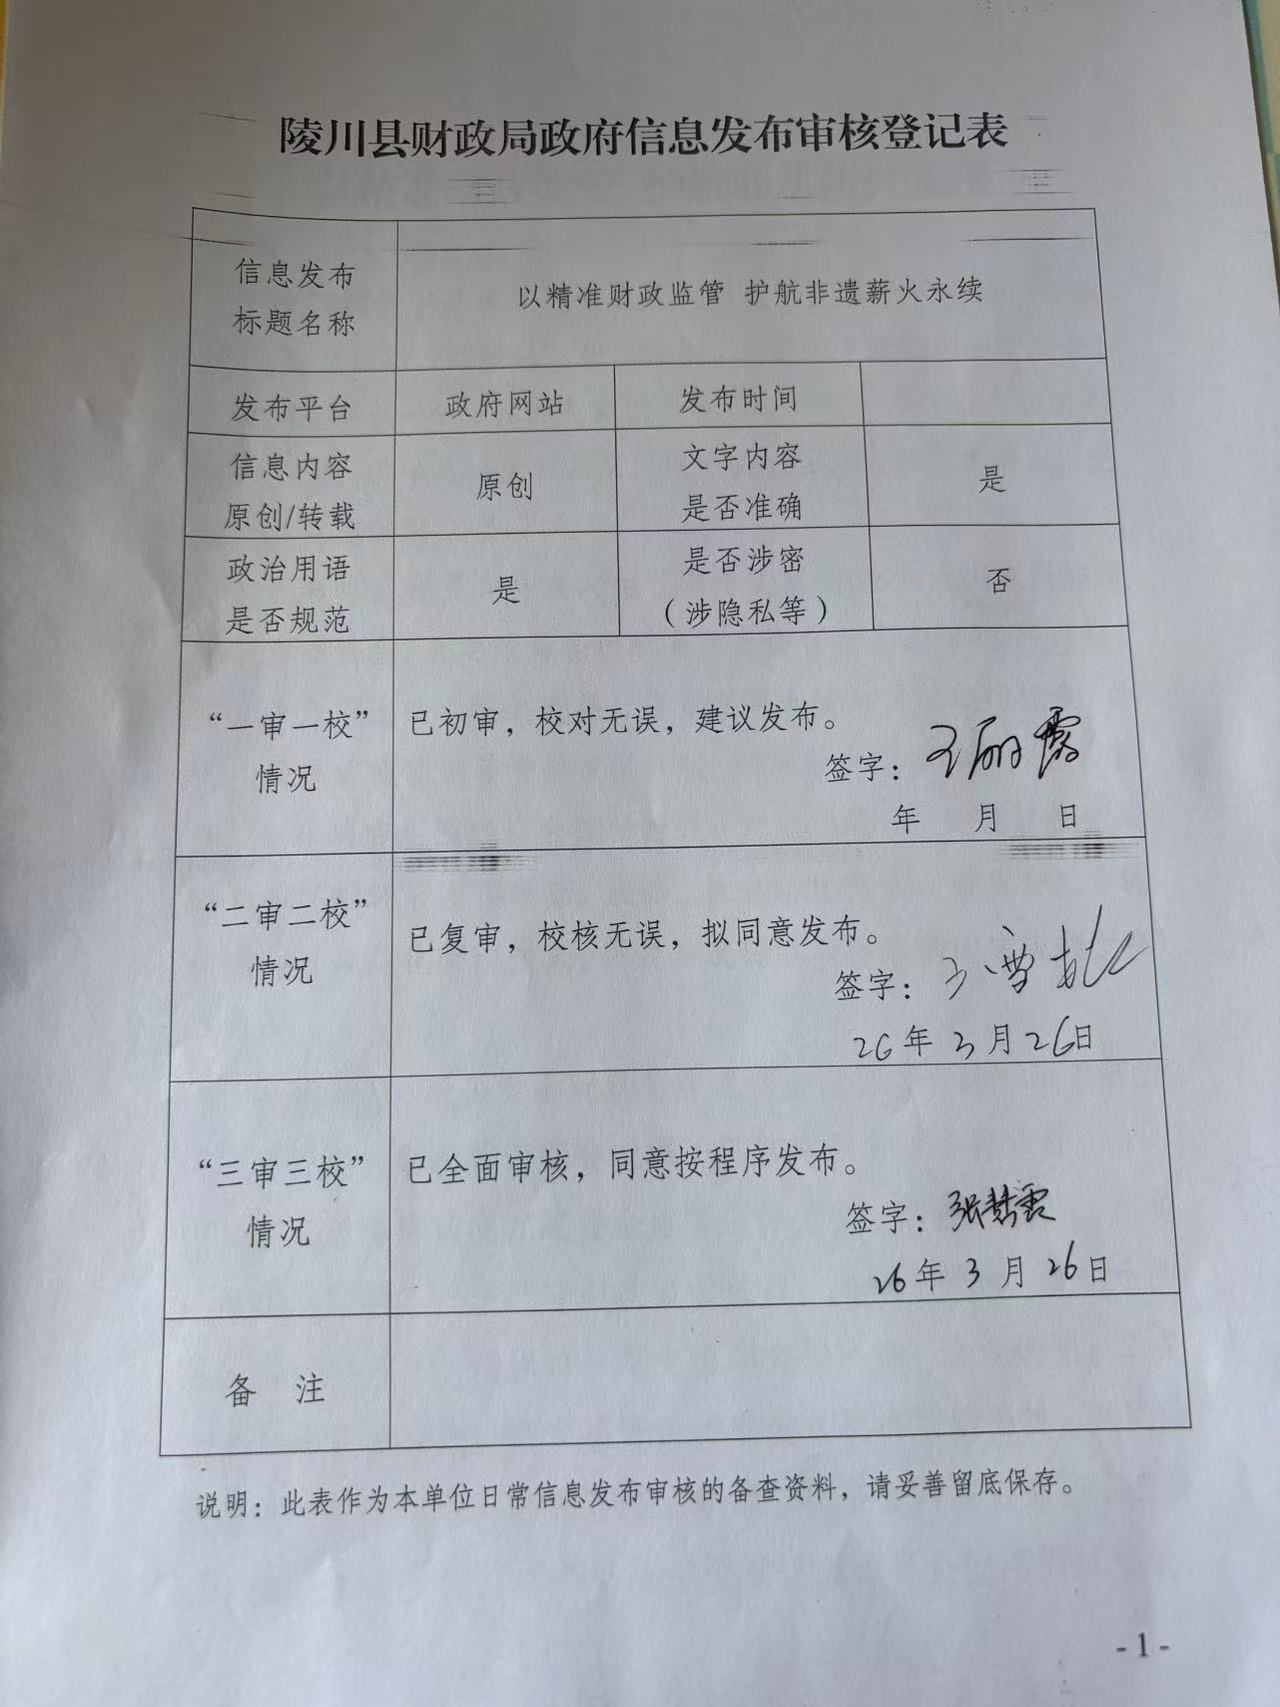 陵川县财政局政府信息发布审核登记表
信息发布
标题名称
以精准财政监管 护航非遗薪火永续
发布平台
政府网站
发布时间
信息内容
原创/转载
原创
文字内容
是否准确
是
政治用语
是否规范
是
是否涉密
（涉隐私等）
否
“一审一校”
情况
已初审，校对无误，建议发布。
签字：王丽霞
年 月 日
“二审二校”
情况
已复审，校核无误，拟同意发布。
签字：
26年 3月 26日
“三审三校”
情况
已全面审核，同意按程序发布。
签字：张慧霞
26年 3月 26日
备 注
说明：此表作为本单位日常信息发布审核的备查资料，请妥善留底保存。
- 1 -